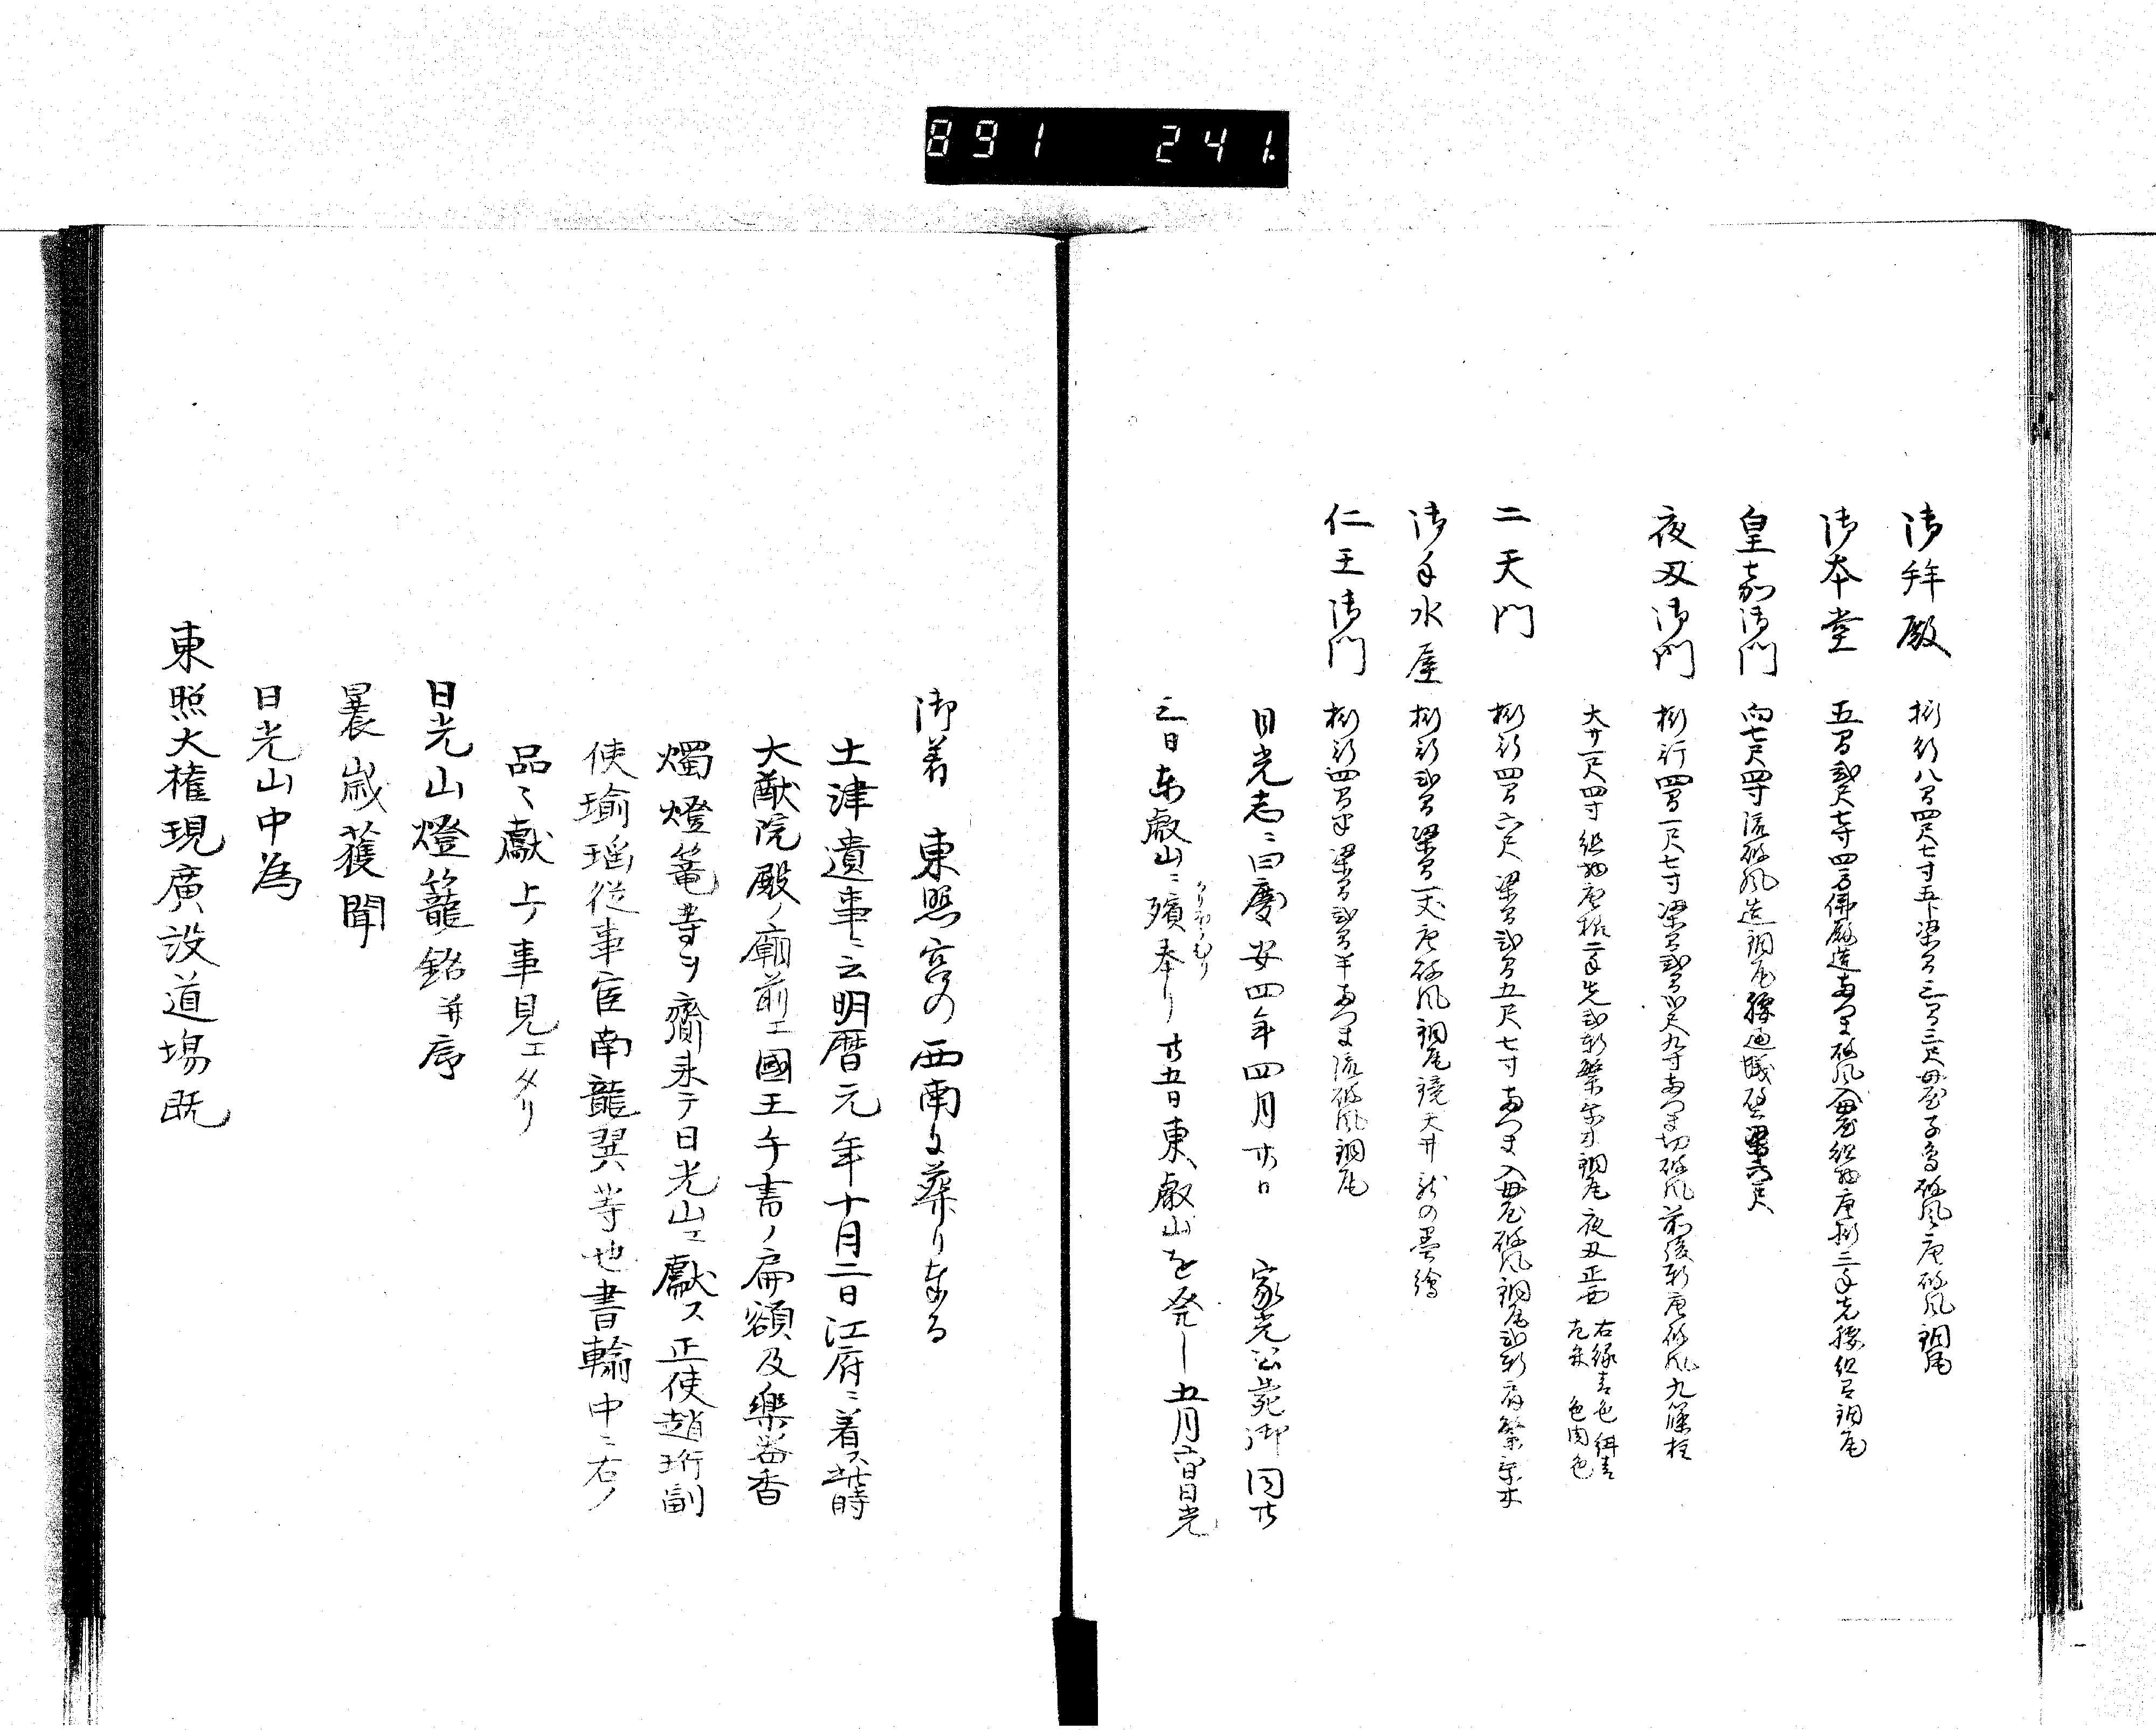 891 241.
御拝殿 桁行八間四尺七寸五分梁間三間三尺母屋千鳥破風唐破風銅瓦
御本堂 五間貳尺七寸四方佛殿造あつま破風入母屋組物唐様二手先腰組同銅瓦
皇嘉御門 向七尺四寸流破風造銅瓦
夜叉御門 桁行四間一尺七寸梁間貳間 九寸あつま切破風前後軒唐破風九篠柱
大サ一尺四寸組物唐様二手先貳軒繁垂木銅瓦夜叉正面
右縁青色
色肉色
二天門 桁行四間六尺梁間貳間五尺七寸あつま入母屋破風銅瓦貳軒扇繁垂木
御手水屋 桁行貳間梁間一丈唐破風銅瓦鏡天井龍の墨繪
仁王御門 桁行四間半梁間貳間半あつま流破風銅瓦
日光志ニ曰慶安四年四月廿日 家光公薨御同廿
三日東叡山ニ殯奉り廿五日東叡山を発し五月六日日光
御着 東照宮の西南に葬り奉る
土津遺事ニ云明暦元年十月二日江府ニ着ス此時
大猷院殿ノ廟前エ國王手書ノ扁額及樂器香
燭燈篭等ヲ齎来テ日光山エ獻ス正使趙珩副
使瑜瑒從事官南龍翼等也書輪中ニ右ノ
品々獻上ノ事見エタリ
日光山燈籠銘并序
曩歳獲聞
日光山中為
東照大権現廣設道場既